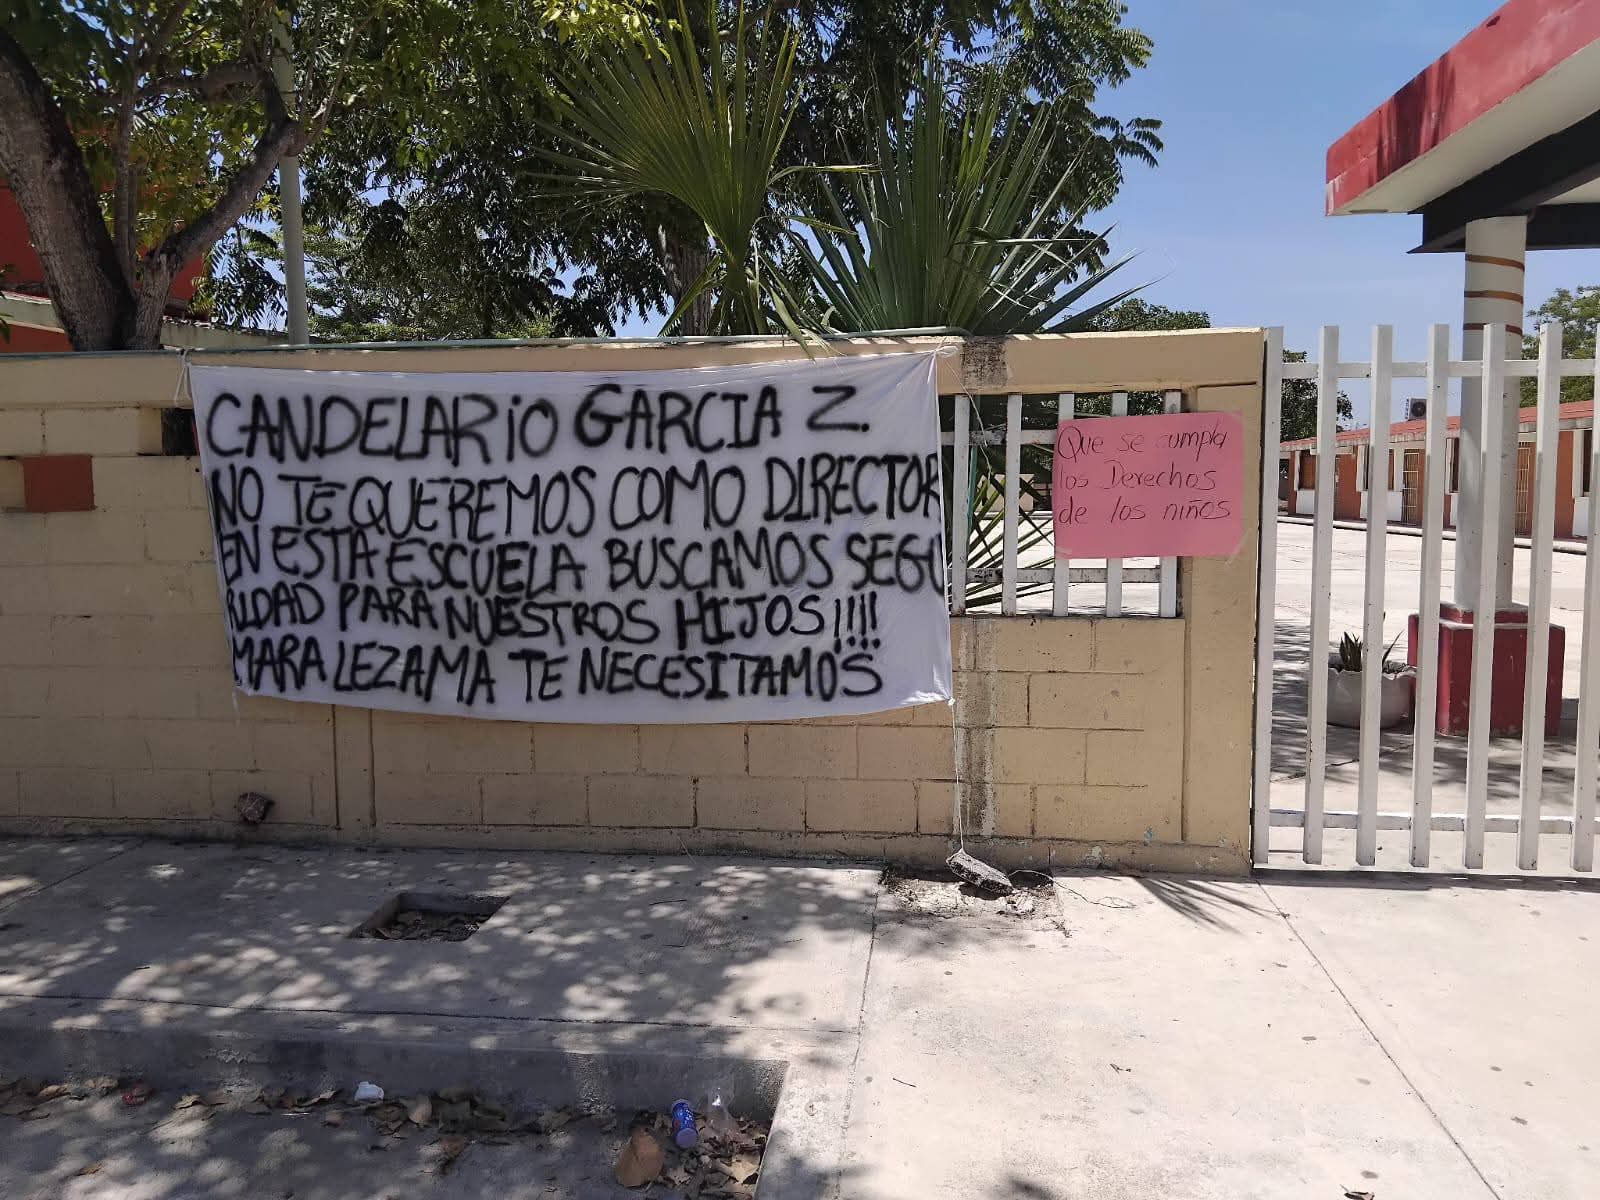 CANDELARiO GARCIA Z.
NO TE QUEREMOS COMO DIRECTOR
EN ESTA ESCUELA BUSCAMOS SEGU
RIDAD PARA NUESTROS HIJOS!!!!
MARA LEZAMA TE NECESITAMOS
Que se cumpla
los Derechos
de los niños